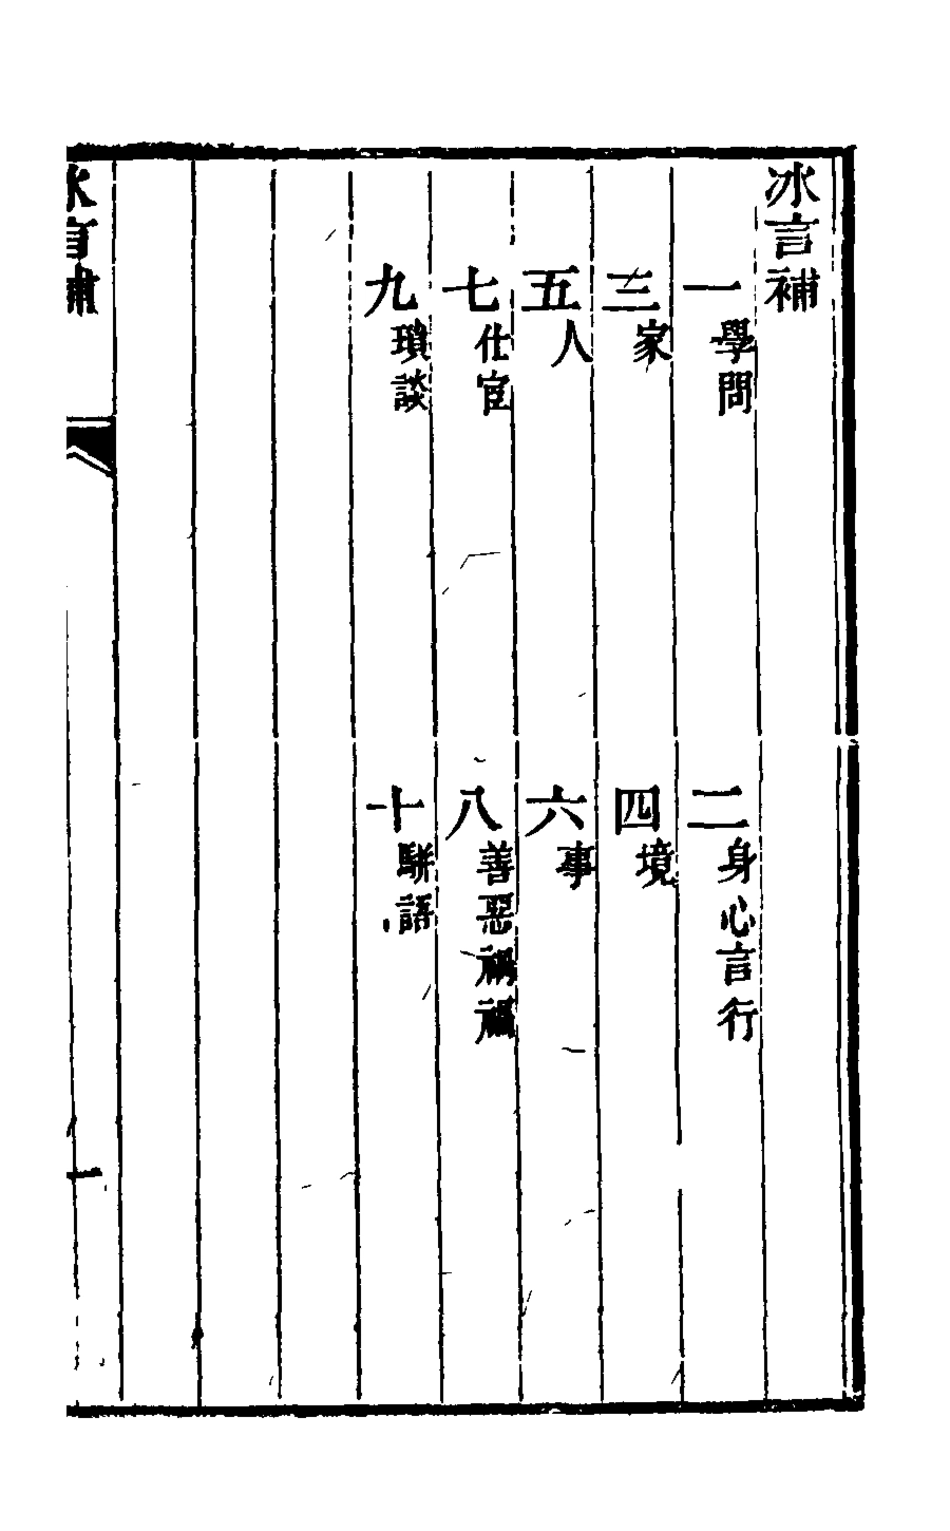 冰言補
一學問 二身心言行
三家 四境
五人 六事
七仕宦 八善惡禍福
九瑣談 十駢語
冰言補
一